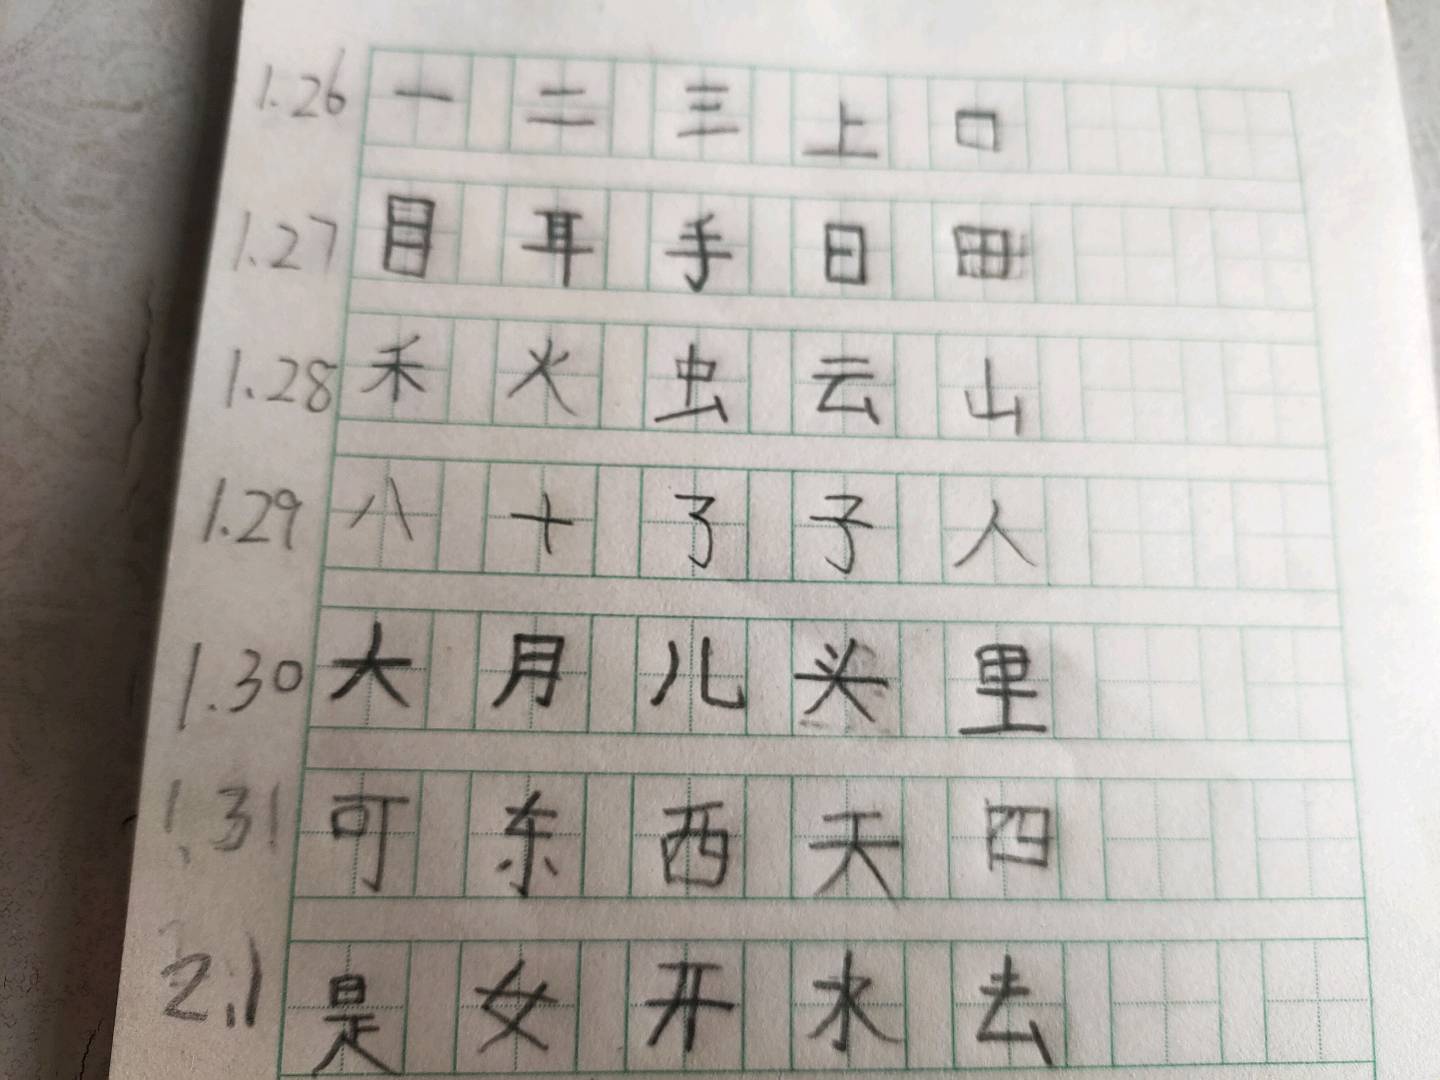 1.26 一 二 三 上 口
1.27 目 耳 手 日 田
1.28 禾 火 虫 云 山
1.29 八 十 了 子 人
1.30 大 月 儿 头 里
1.31 可 东 西 天 四
2.1 是 女 开 水 去